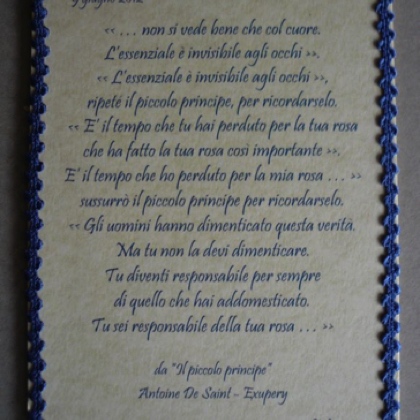 9 giugno 2012
<< ... non si vede bene che col cuore.
L'essenziale è invisibile agli occhi >>.
<< L'essenziale è invisibile agli occhi >>,
ripeté il piccolo principe, per ricordarselo.
<< E' il tempo che tu hai perduto per la tua rosa
che ha fatto la tua rosa così importante >>.
E' il tempo che ho perduto per la mia rosa ... >>
sussurrò il piccolo principe per ricordarselo.
<< Gli uomini hanno dimenticato questa verità.
Ma tu non la devi dimenticare.
Tu diventi responsabile per sempre
di quello che hai addomesticato.
Tu sei responsabile della tua rosa ... >>
da "Il piccolo principe"
Antoine De Saint - Exupery